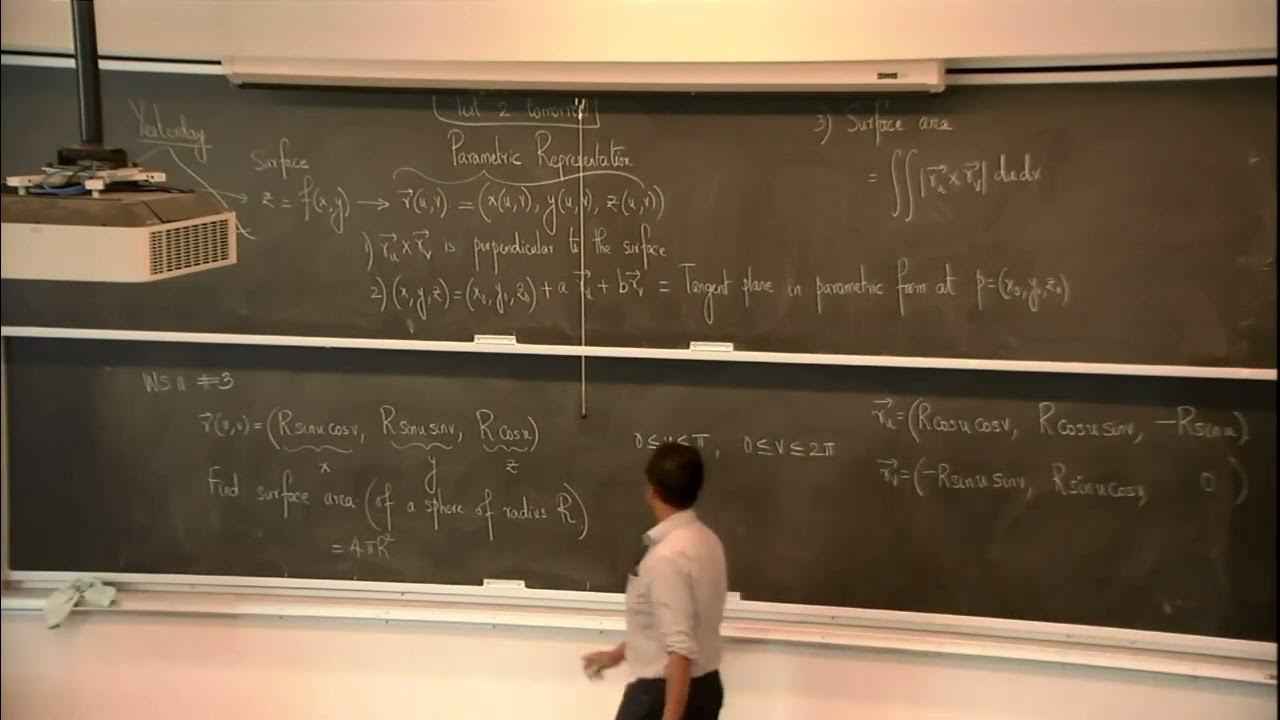 Yesterday
Test 2 tomorrow
Surface
Parametric Representation
z = f(x,y) → r⃗(u,v) = (x(u,v), y(u,v), z(u,v))
1) r⃗ᵤ × r⃗ᵥ is perpendicular to the surface
2) (x,y,z) = (x₀,y₀,z₀) + a r⃗ᵤ + b r⃗ᵥ = Tangent plane in parametric form at p=(x₀,y₀,z₀)
3) Surface area
= ∬ |r⃗ᵤ × r⃗ᵥ| du dv
WS 11 #3
r⃗(u,v) = (R sinu cosv, R sinu sinv, R cosu) 0 ≤ u ≤ π, 0 ≤ v ≤ 2π
x y z
Find surface area (of a sphere of radius R)
= 4πR²
r⃗ᵤ = (R cosu cosv, R cosu sinv, -R sinu)
r⃗ᵥ = (-R sinu sinv, R sinu cosv, 0)